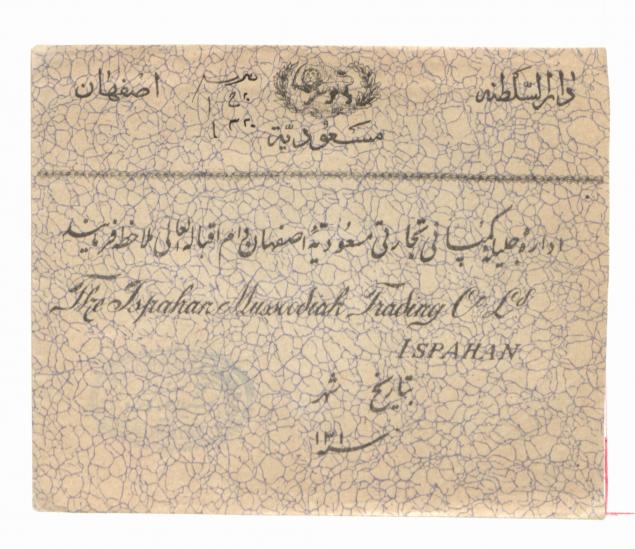 دارالسلطنه اصفهان
مسعودیة
۱۳۲۰
ادارهٔ جلیلهٔ کمپانی تجارتی مسعودیهٔ اصفهان دام اقباله العالی ملاحظه فرمایند
The Ispahan Mussoodiah Trading Co. Ld.
ISPAHAN
بتاریخ شهر
سنه ۱۳۱